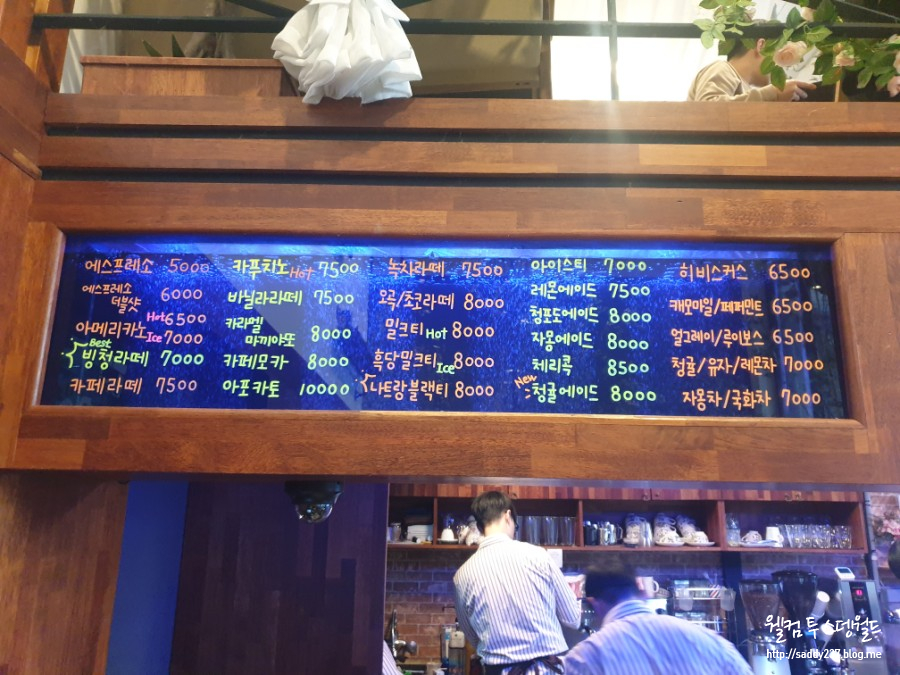 에스프레소 5000
에스프레소 더블샷 6000
아메리카노 Hot 6500
Ice 7000
Best 빙청라떼 7000
카페라떼 7500
카푸치노 Hot 7500
바닐라라떼 7500
카라멜 마끼아또 8000
카페모카 8000
아포카토 10000
녹차라떼 7500
오곡/초코라떼 8000
밀크티 Hot 8000
흑당밀크티 Ice 8000
나트랑블랙티 8000
아이스티 7000
레몬에이드 7500
청포도에이드 8000
자몽에이드 8000
체리콕 8500
New 청귤에이드 8000
히비스커스 6500
캐모마일/페퍼민트 6500
얼그레이/루이보스 6500
청귤/유자/레몬차 7000
자몽차/국화차 7000
웰컴 투 뎅월드
http://saddy237.blog.me